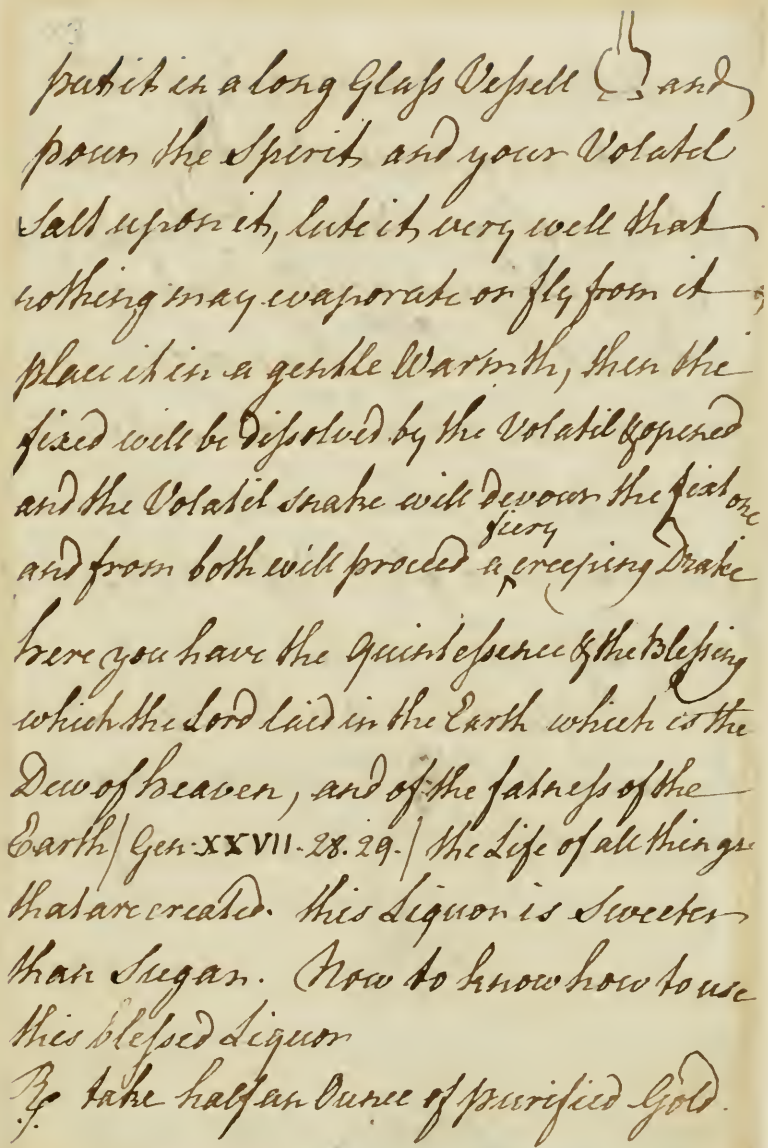 put it in a long Glaſs Veſsell and
pour the Spirit and your Volatil
Salt upon it, lute it very well that
nothing may evaporate or fly from it
place it in a gentle Warmth, then the
fixed will be diſsolved by the Volatil & opened
and the Volatil snake will devour the fixt one
and from both will proceed a fiery creeping Drake
here you have the Quinteſsence & the Bleſsing
which the Lord laid in the Earth which is the
Dew of heaven, and of the fatneſs of the
Earth / Gen. XXVII. 28. 29. / the Life of all things
that are created. this Liquor is Sweeter
than Sugar. Now to know how to use
this bleſsed Liquor
℞ take half an Ounce of purified Gold.